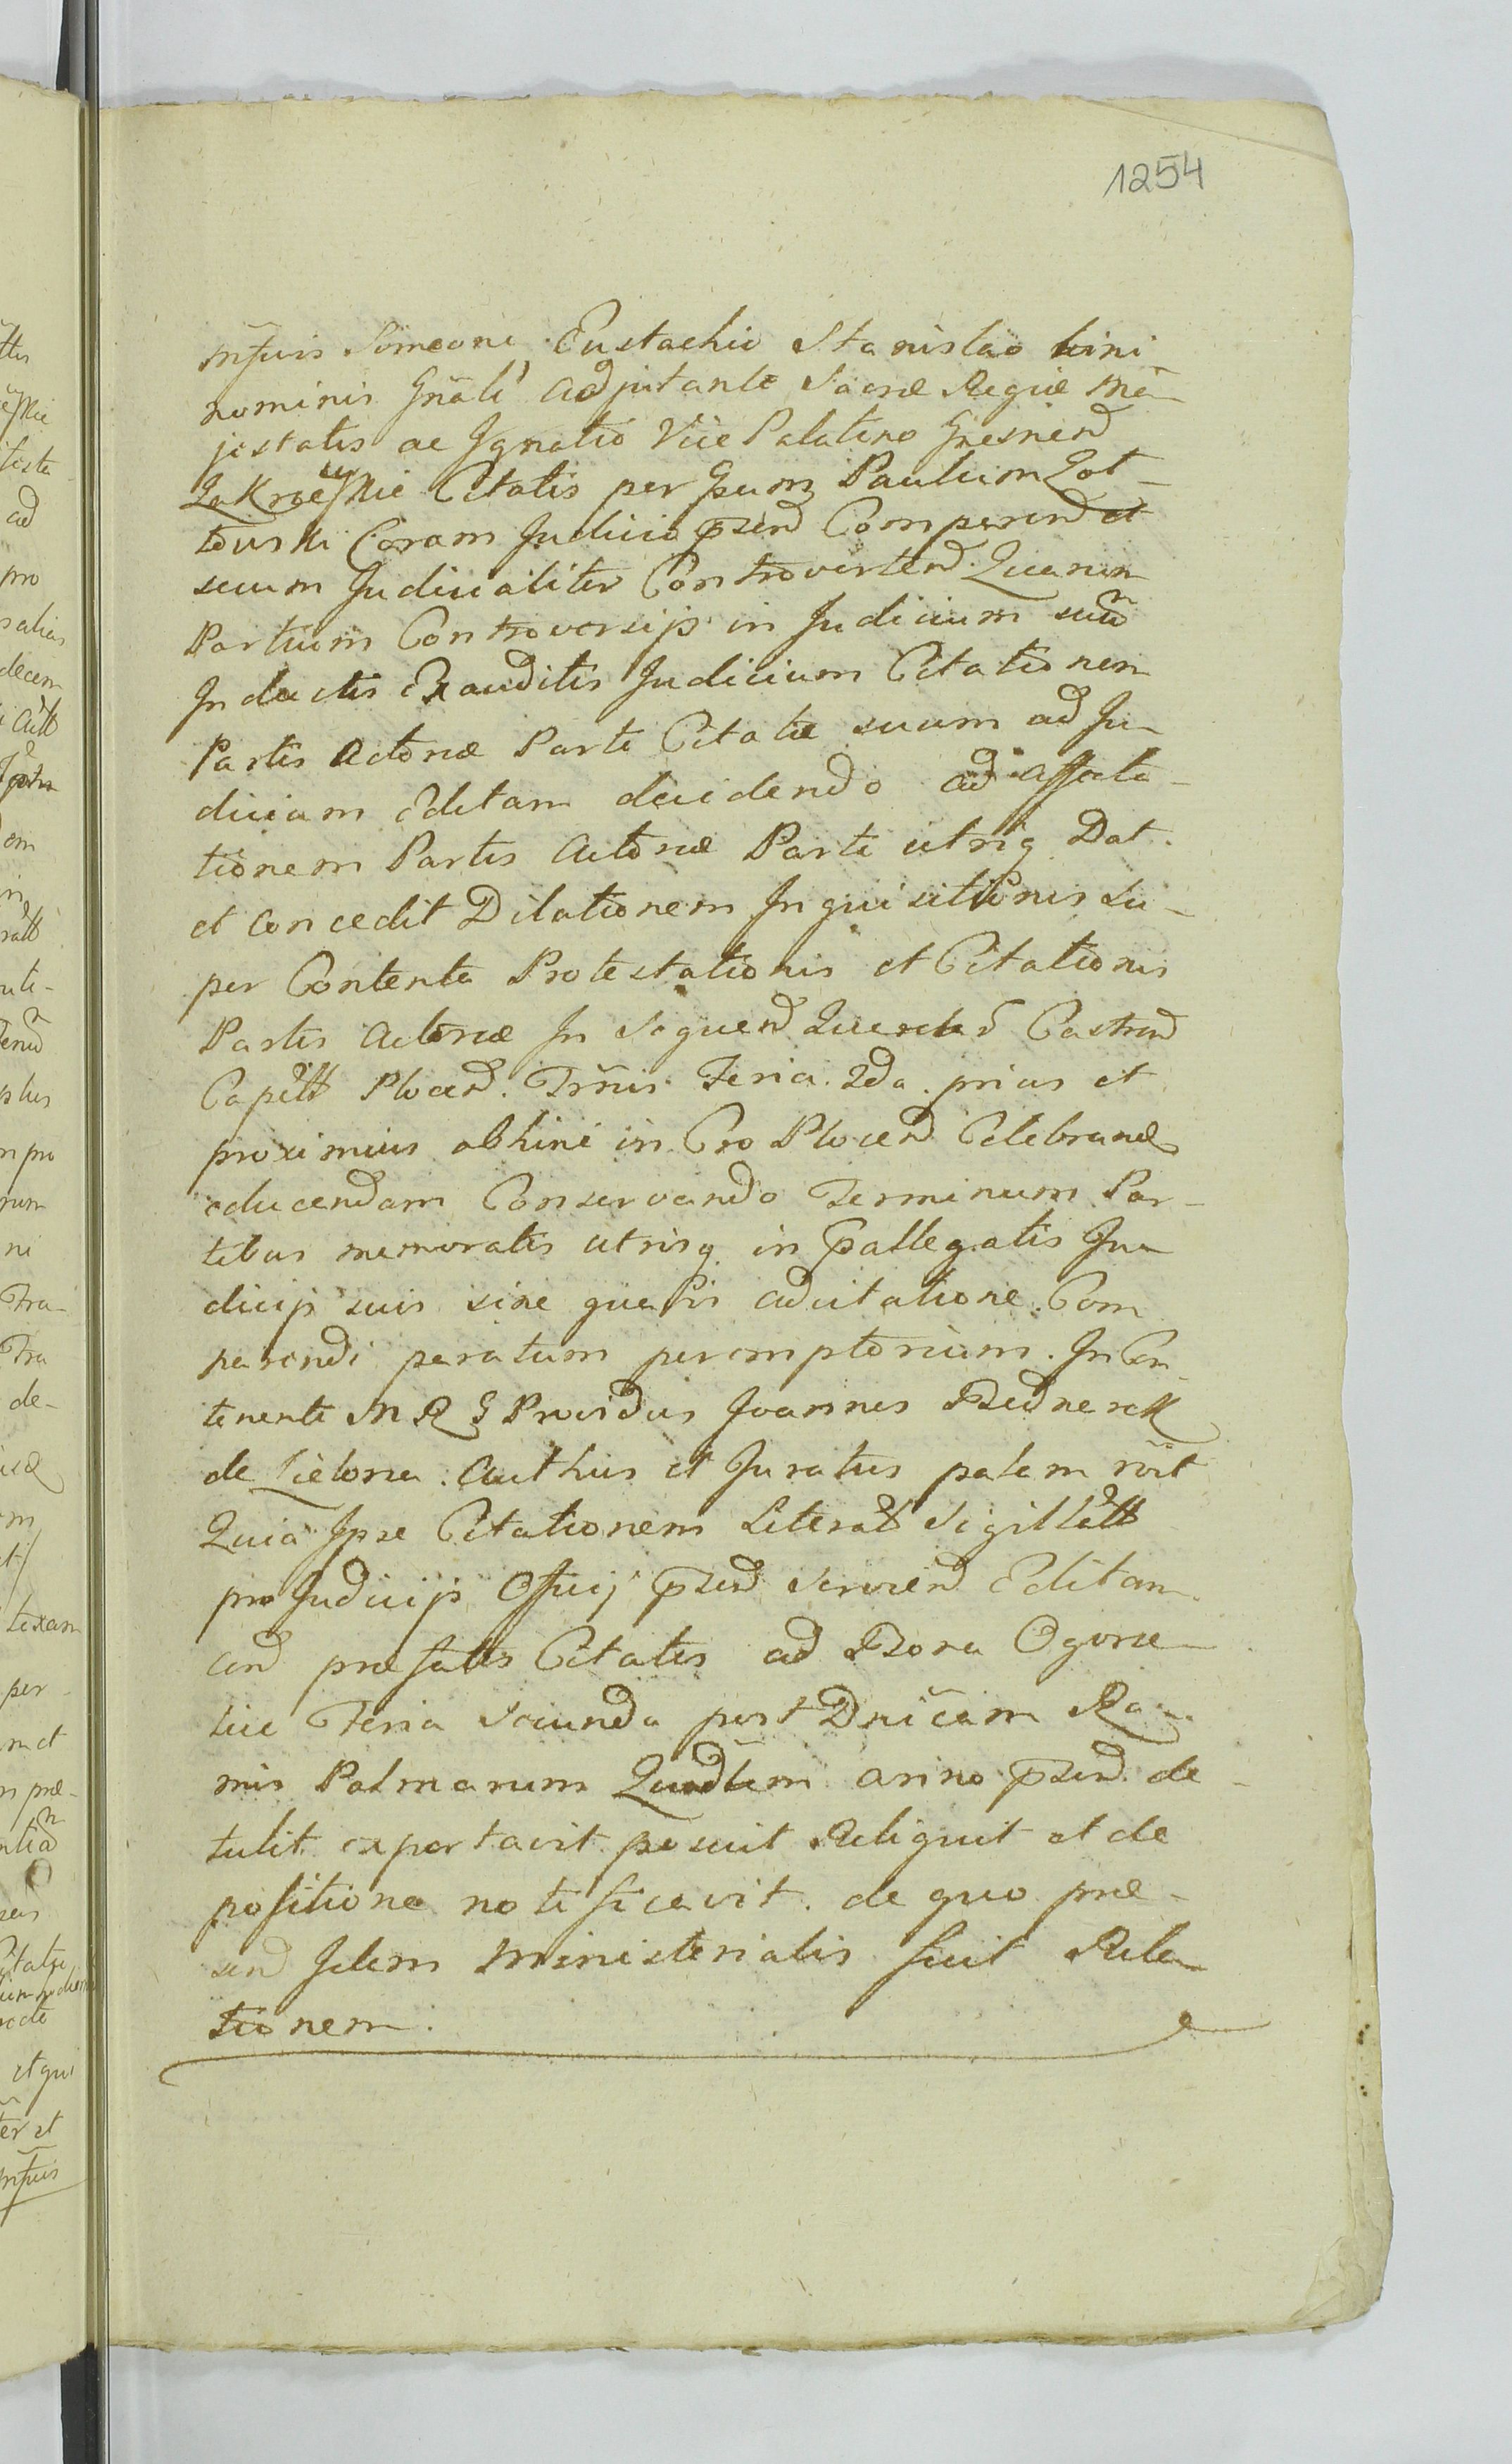 1254
Mfcis Simeone Eustachio Stanislao bini
nominis Gnãli Adjutante Sacræ Regiæ Ma-
jestatis ac Ignatio Vice Palatino Gnesnen
Zakrzewskie Citatis per Gsum Paulum Zot-
towski Coram Judicio pzn̄ Comparen et
secum Judicialiter Controverten. Quarum
Partium Controversijs in Judicium suũ
Inductis Exauditis Judicium Citationem
Partis Actoreæ Parti Citatæ suum ad Ju-
dicium Editam decidendo ad affecta-
tionem Partis Actoreæ Parti utriq Dat
et concedit Dilationem Inquisitionis Su-
per Contenta Protestationis et Citationis
Partis Actoreæ In Sequen Querelar Castren
Capitt Plocen. Trnis Feria 2da prius et
proximius abhinc in Cro Plocen Celebrand
educendam Conservando Terminum Par-
tibus memoratis utrisq in pallegatis Ju-
dicijs suis sine quavis adcitatione Com
parendi paratum peremptorium. In Con-
tinenti M R G Providus Joannes Bednarek
de Zielona Authus et Juratus palam rõit
Quia Ipse Citationem Literatt Sigillatt
pro Judicijs Officij pzn̄ Servien Editam
and præfatis Citatis ad Bona Ogorze-
lice Feria Secunda post Dnicam Ra-
mis Palmarum Quadtem anno pzn̄ de-
tulit exportavit posuit Reliquit et de
positione notificavit. de quo præ-
sen Idem Ministerialis fecit Rela-
tionem.